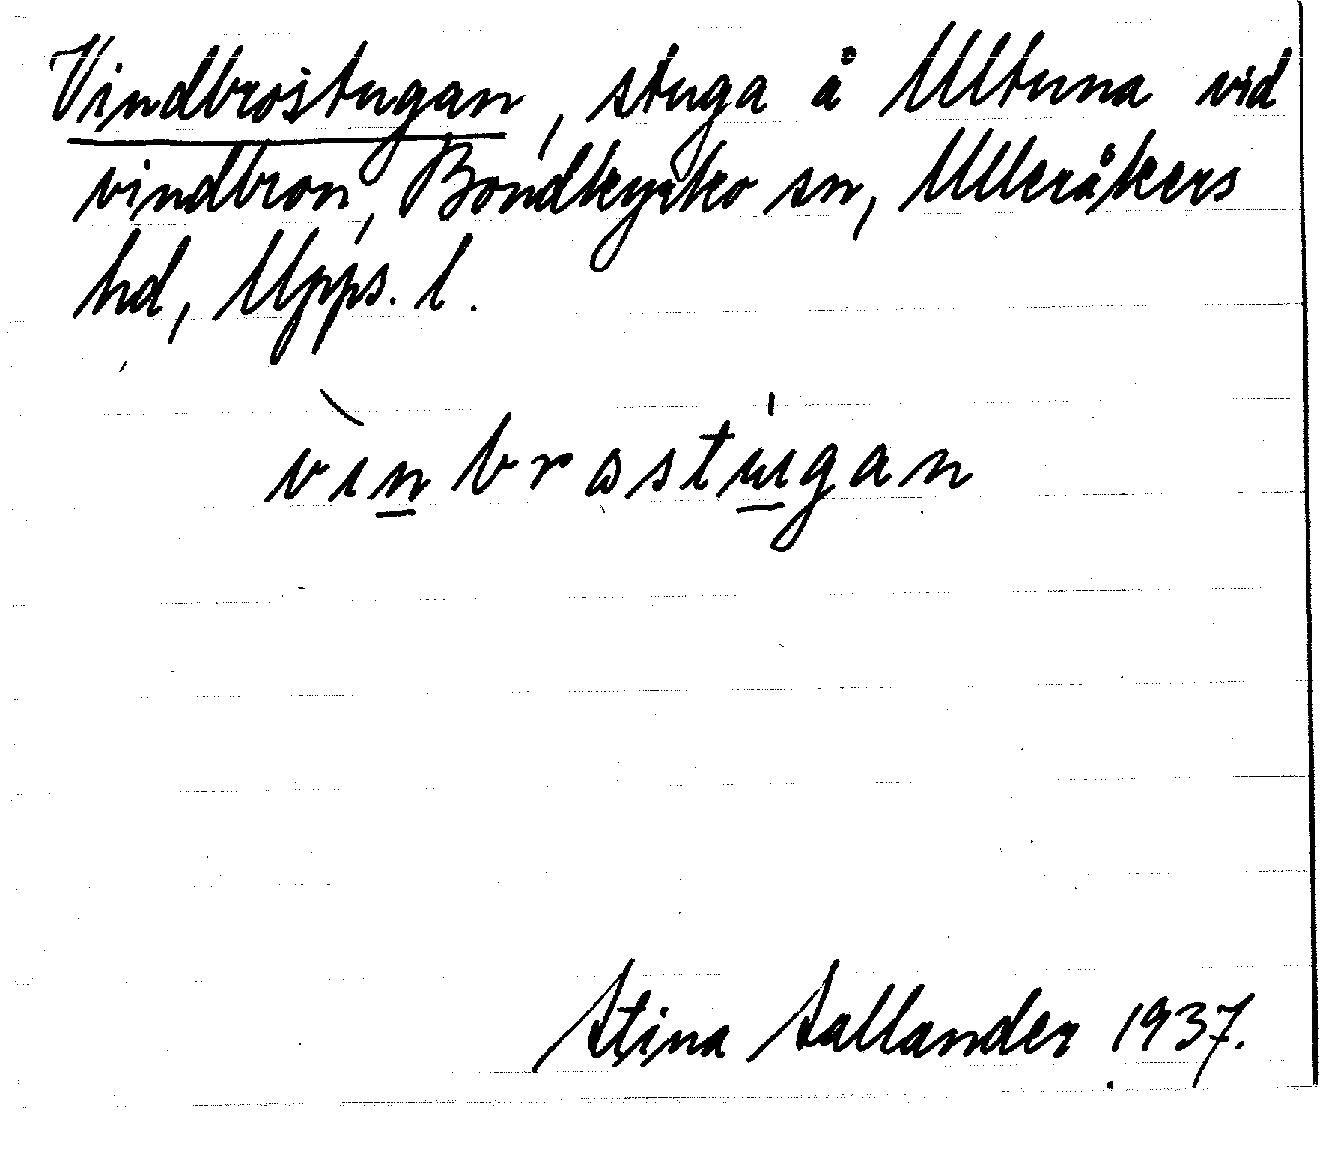 Vindbrostugan, stuga å Ultuna vid
vindbron, Bondkyrko sn, Ulleråkers
hd, Upps. l.
vìn̲brastu̲̍gan
Stina Sallander 1937.